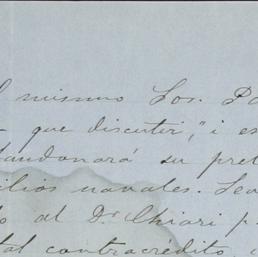 mismo Sor.
que discutir," i es
bandonará su pret
ilios navales.
al Dr. Chiari p
tal contracrédito